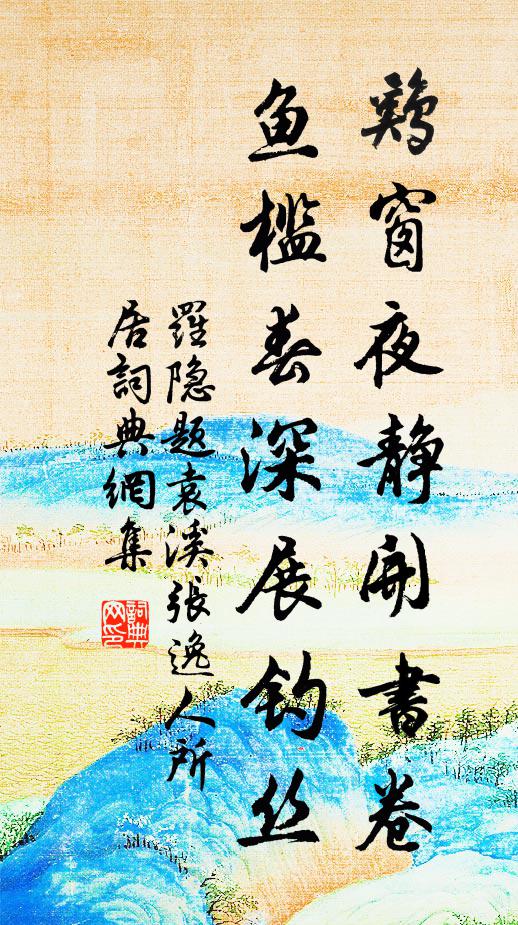 鷄窗夜静開書卷
魚檻春深展钓丝
羅隐題袁溪張逸人所
居詞典網集
詞典网印